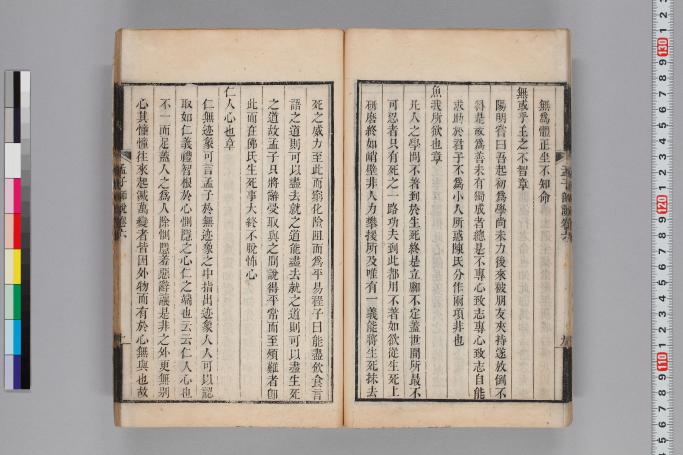 無爲體正坐不知命
無或乎王之不智章
陽明嘗曰吾起初爲學尚未力後來被朋友夾持遂放倒不
得是故爲善未有獨成者總是不專心致志專心致志自能
求助於君子不爲小人所惑陳氏分作兩項非也
魚我所欲也章
凡人之學問不著到於生死終是立腳不定蓋世間所最不
可忍者只有死之一路功夫到此都用不著如欲從生死上
研磨終如峭壁非人力攀援所及唯有一義能將生死抹去
死之威力至此而窮化險阻而爲平易程子曰能盡飲食言
語之道則可以盡去就之道能盡去就之道則可以盡生死
之道故孟子只將辭受取與之間說得平常而至煩難者卽
此而在佛氏生死事大終不脫怖心
仁人心也章
仁無迹象可言孟子於無迹象之中指出迹象人人可以認
取如仁義禮智根於心惻隱之心仁之端也云云仁人心也
不一而足蓋人之爲人除惻隱羞惡辭讓是非之外更無別
心其憧憧往來起滅萬變者皆因外物而有於心無與也故
孟子師說卷六
十
孟子師說卷六
九